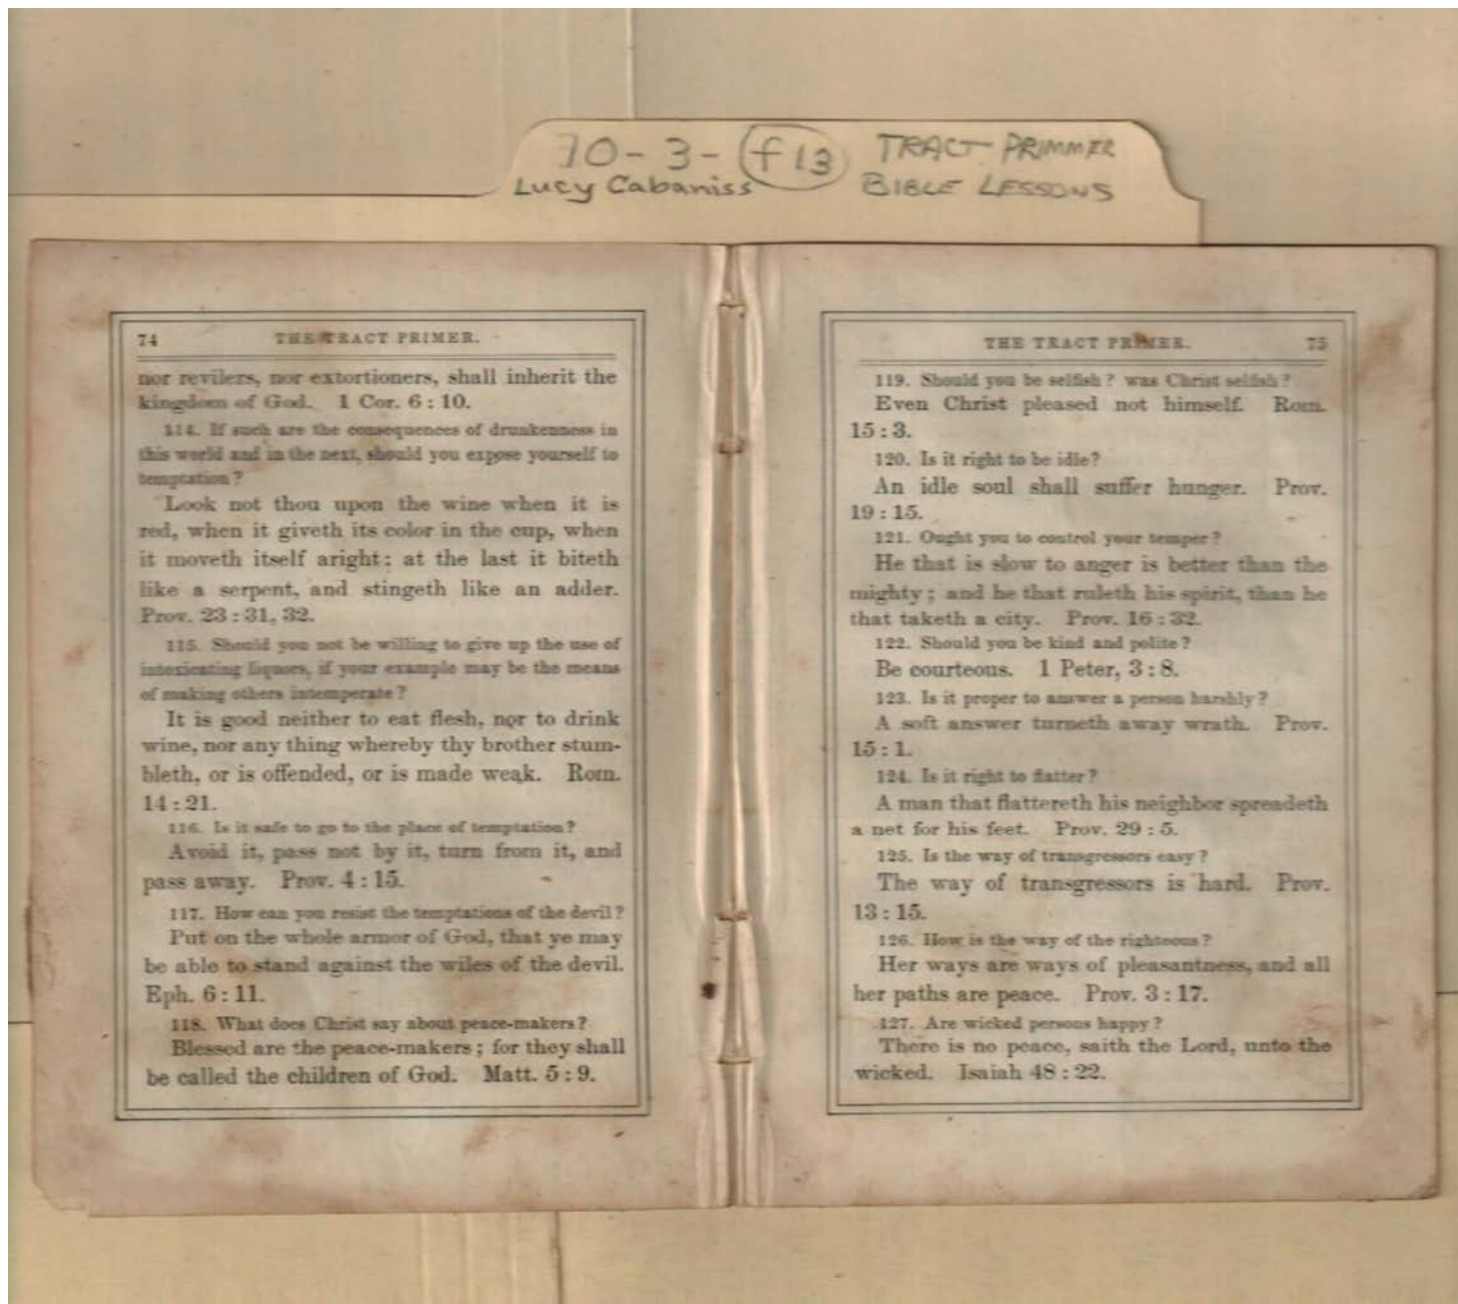 70-3-f13 TRACT PRIMMER
Lucy Cabaniss BIBLE LESSONS
74 THE TRACT PRIMER.
nor revilers, nor extortioners, shall inherit the
kingdom of God. 1 Cor. 6 : 10.
114. If such are the consequences of drunkenness in
this world and in the next, should you expose yourself to
temptation?
Look not thou upon the wine when it is
red, when it giveth its color in the cup, when
it moveth itself aright: at the last it biteth
like a serpent, and stingeth like an adder.
Prov. 23 : 31, 32.
115. Should you not be willing to give up the use of
intoxicating liquors, if your example may be the means
of making others intemperate?
It is good neither to eat flesh, nor to drink
wine, nor any thing whereby thy brother stum-
bleth, or is offended, or is made weak. Rom.
14 : 21.
116. Is it safe to go to the place of temptation?
Avoid it, pass not by it, turn from it, and
pass away. Prov. 4 : 15.
117. How can you resist the temptations of the devil?
Put on the whole armor of God, that ye may
be able to stand against the wiles of the devil.
Eph. 6 : 11.
118. What does Christ say about peace-makers?
Blessed are the peace-makers; for they shall
be called the children of God. Matt. 5 : 9.
THE TRACT PRIMER. 75
119. Should you be selfish? was Christ selfish?
Even Christ pleased not himself. Rom.
15 : 3.
120. Is it right to be idle?
An idle soul shall suffer hunger. Prov.
19 : 15.
121. Ought you to control your temper?
He that is slow to anger is better than the
mighty; and he that ruleth his spirit, than he
that taketh a city. Prov. 16 : 32.
122. Should you be kind and polite?
Be courteous. 1 Peter, 3 : 8.
123. Is it proper to answer a person harshly?
A soft answer turneth away wrath. Prov.
15 : 1.
124. Is it right to flatter?
A man that flattereth his neighbor spreadeth
a net for his feet. Prov. 29 : 5.
125. Is the way of transgressors easy?
The way of transgressors is hard. Prov.
13 : 15.
126. How is the way of the righteous?
Her ways are ways of pleasantness, and all
her paths are peace. Prov. 3 : 17.
127. Are wicked persons happy?
There is no peace, saith the Lord, unto the
wicked. Isaiah 48 : 22.